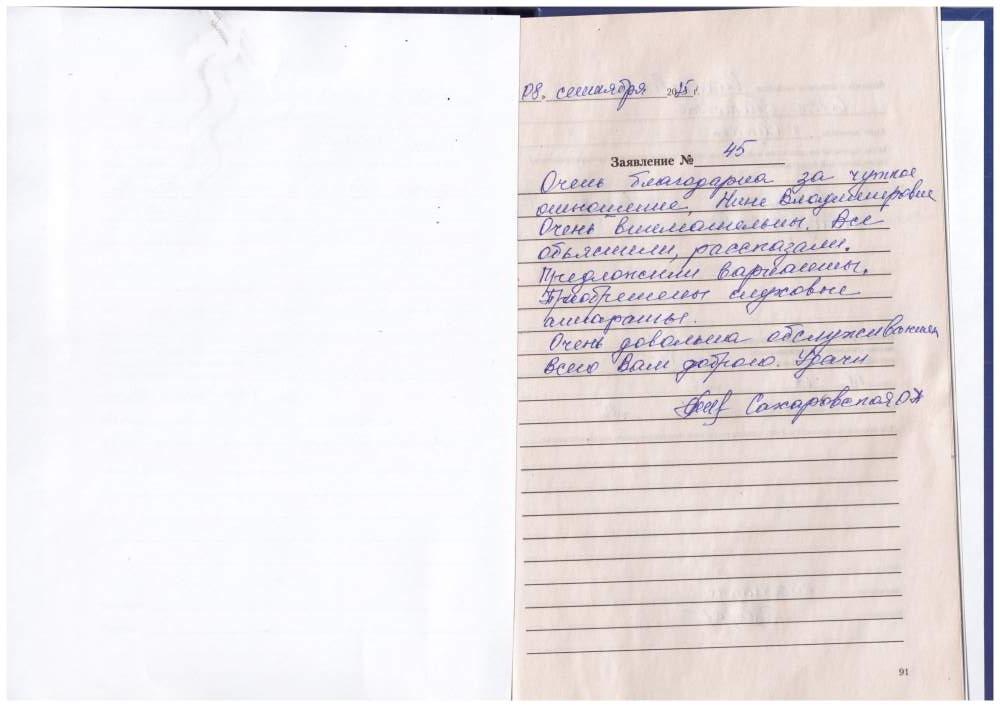 08. сентября 2015 г.
Заявление № 45
Очень благодарна за чуткое
отношение, Нине Владимировне
Очень внимательны. Все
объяснили, рассказали.
Предложили варианты.
Приобретены слуховые
аппараты.
Очень довольна обслуживанием
Всего Вам доброго. Удачи
Сахаровская
91